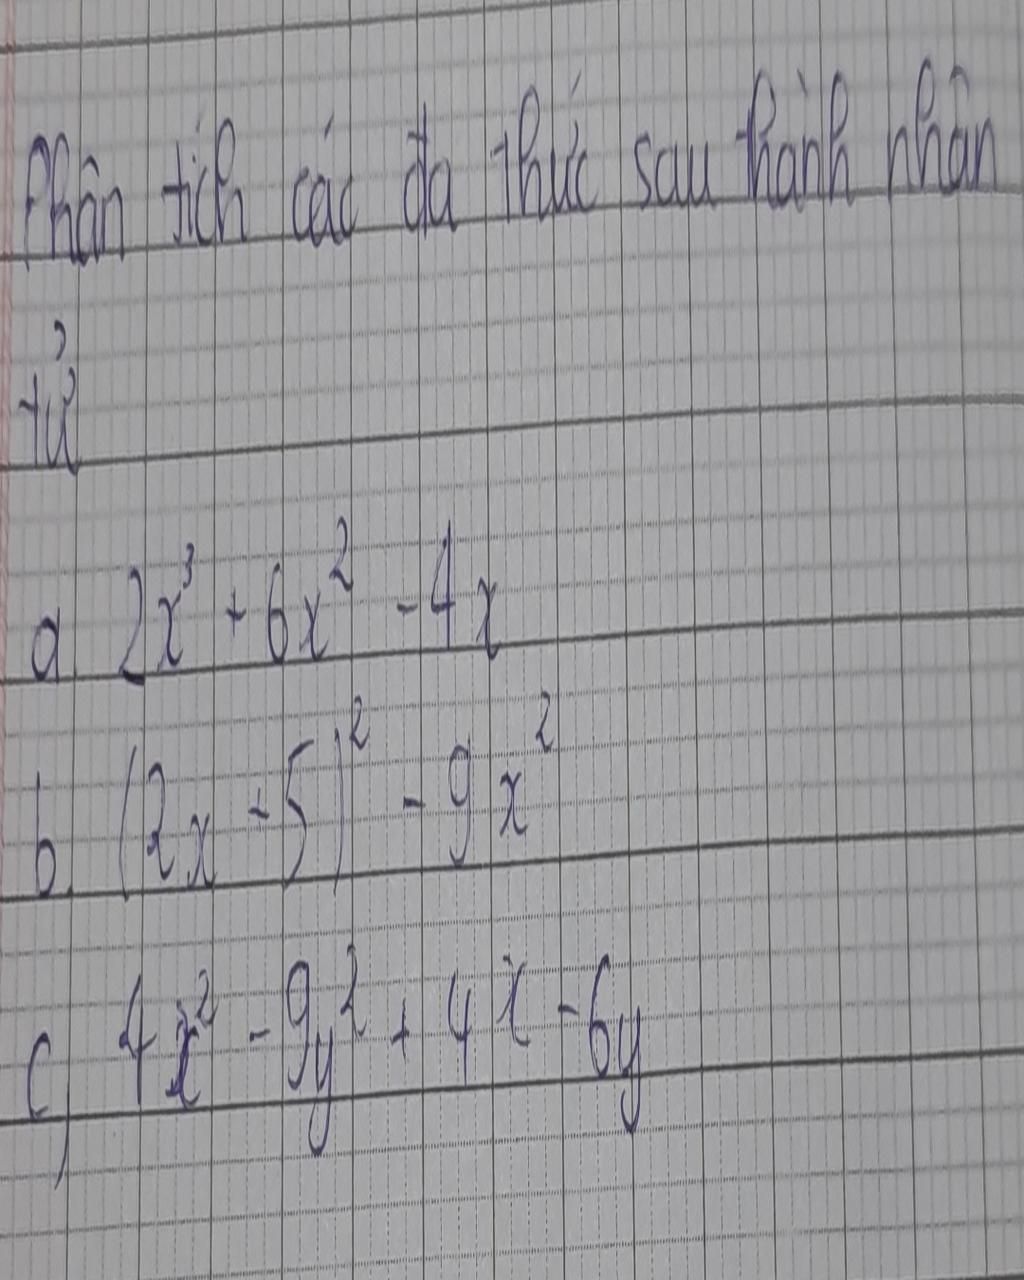 Phân tích các đa thức sau thành nhân
tử
a. 2x³ + 6x² - 4x
b. (2x + 5)² - 9x²
c, 4x² - 9y² + 4x - 6y